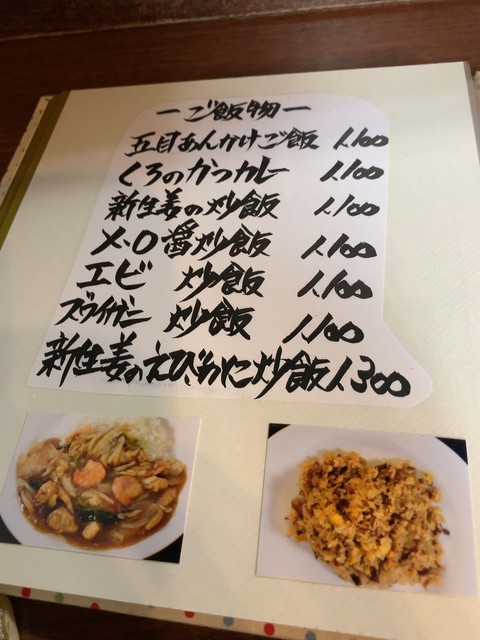 ーご飯物ー
五目あんかけご飯 1.100
くろのかつカレー 1.100
新生姜の炒飯 1.100
X.O醤炒飯 1.100
エビ 炒飯 1.100
ズワイガニ 炒飯 1.100
新生姜のえびかに炒飯 1.300